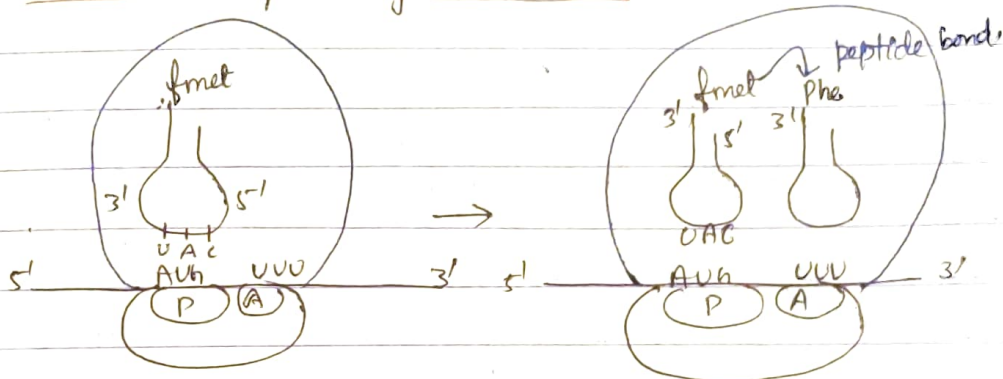 fmet
3' 5'
U A C
5' AUG UUU 3'
P A
peptide bond.
fmet Phe
3' 5' 3'
UAC
5' AUG UUU 3'
P A